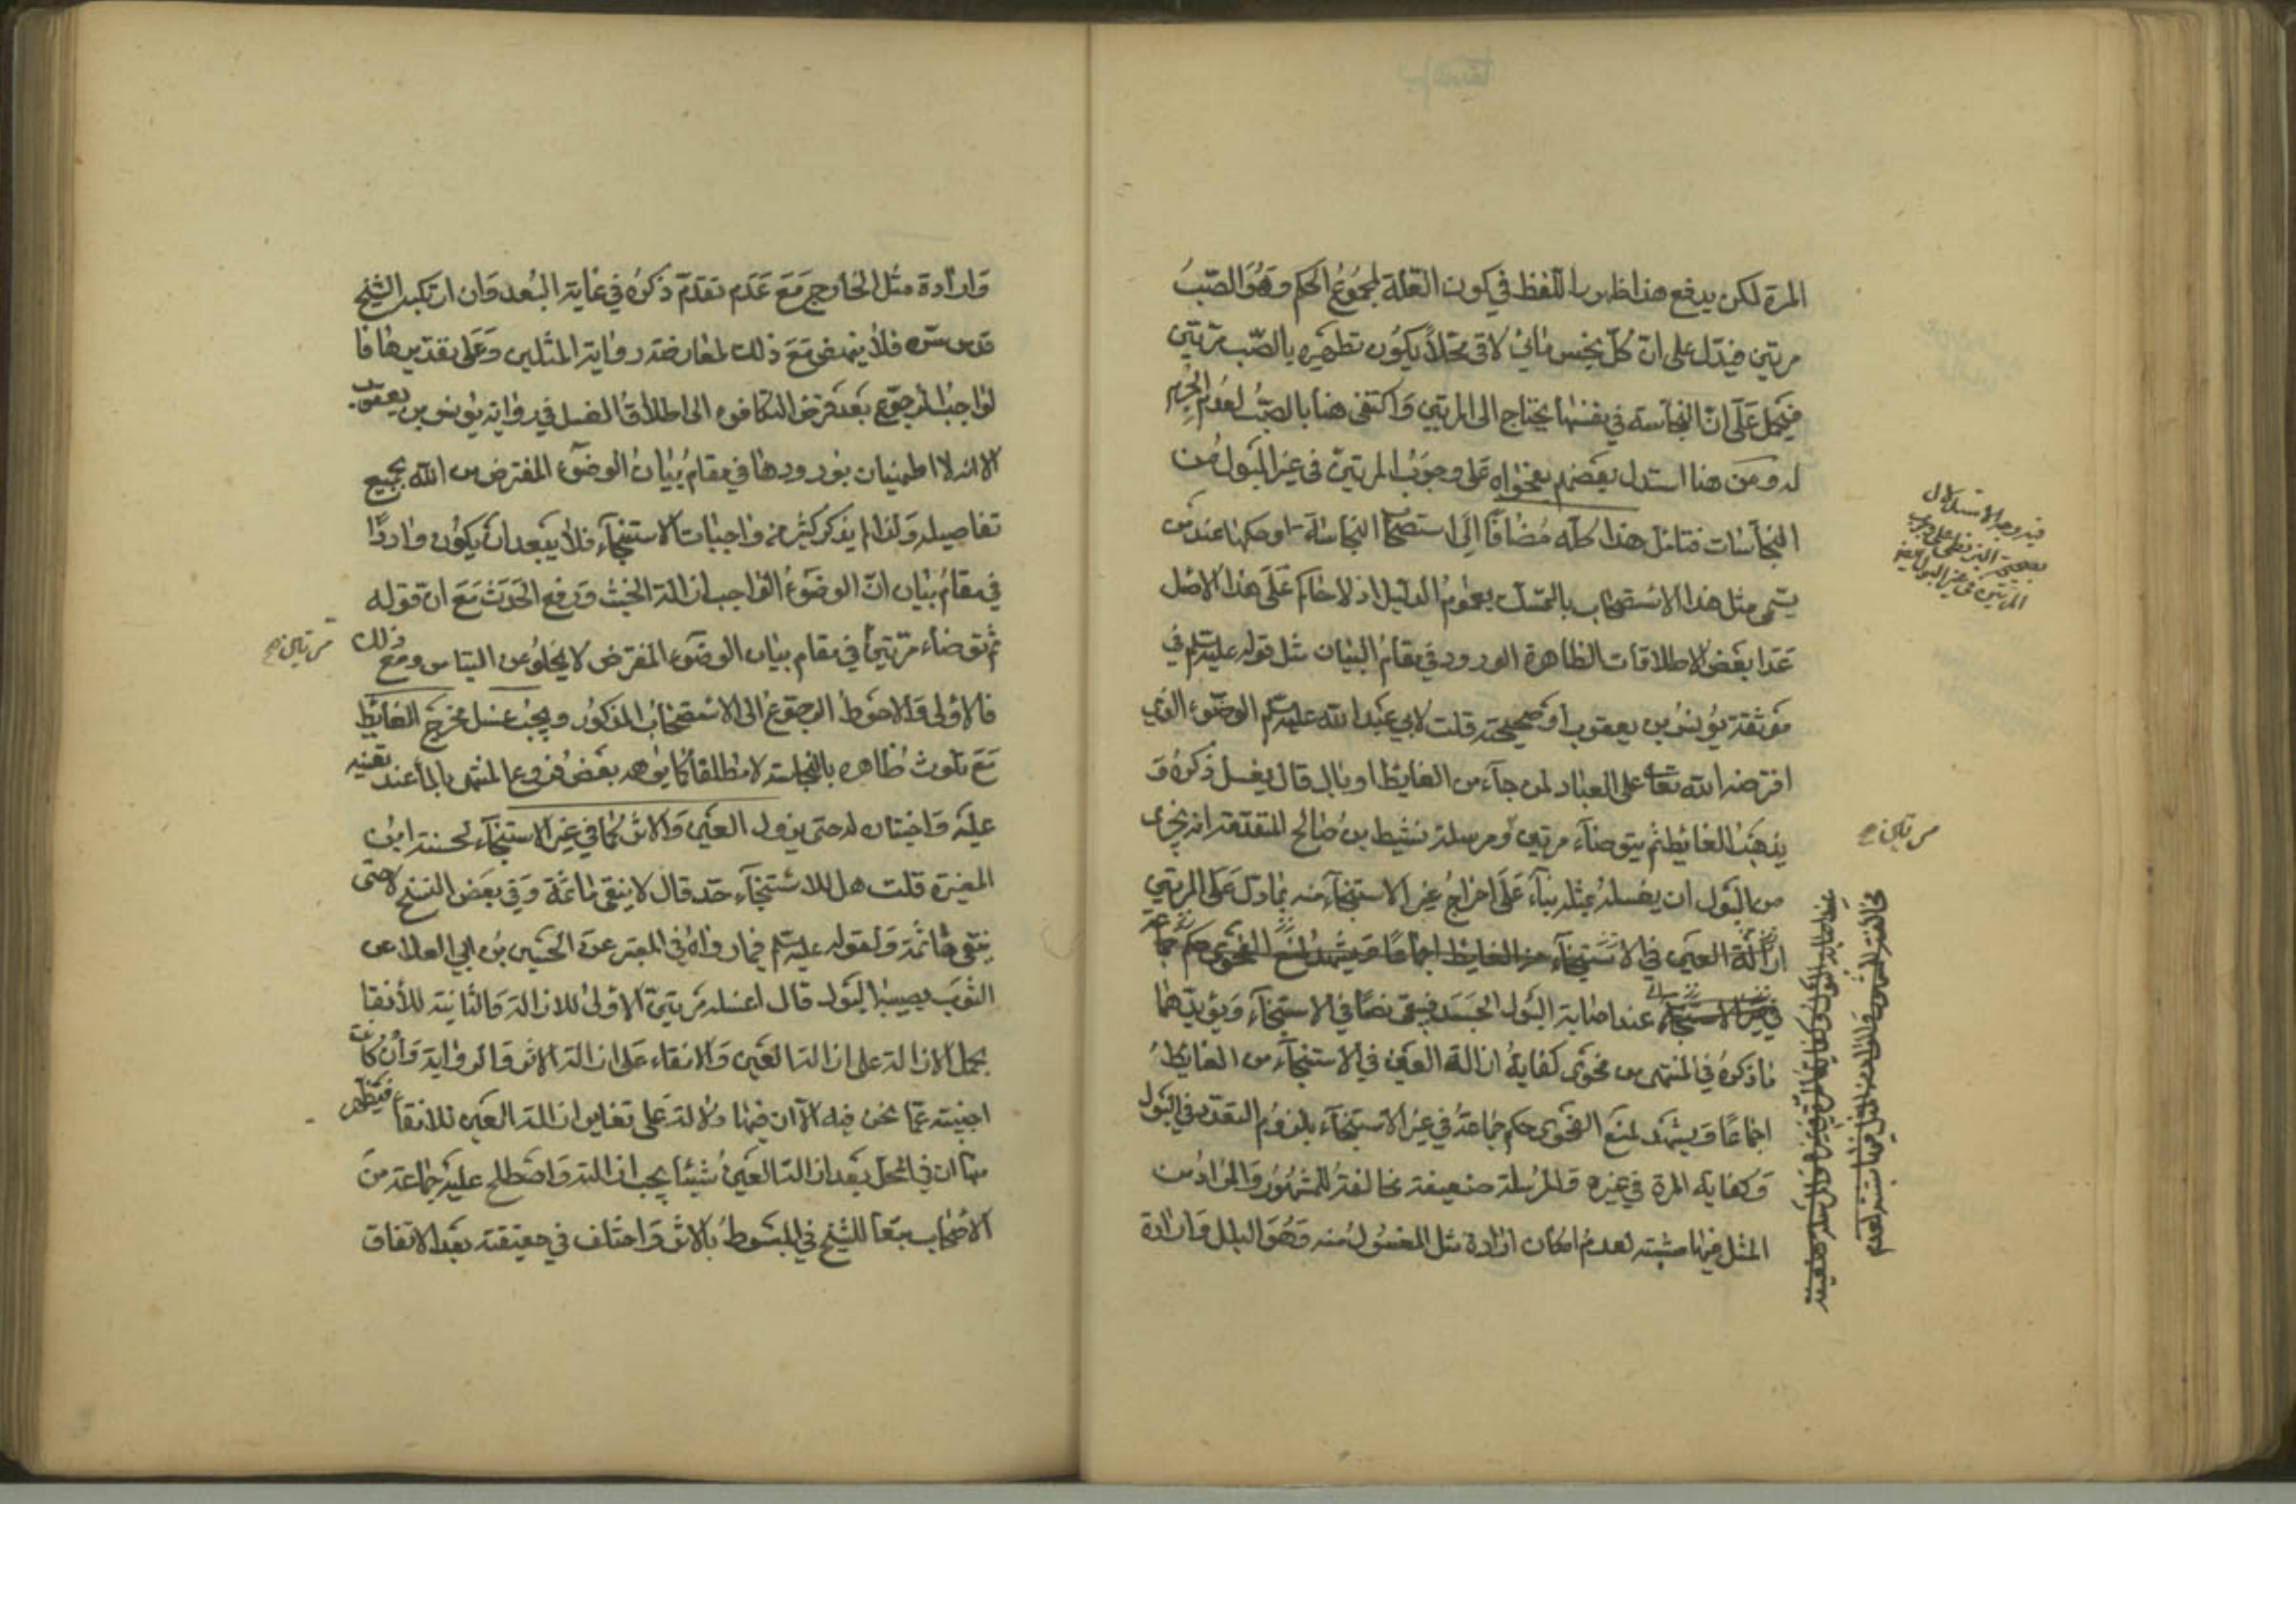 المرة لكن يدفع هذا ظهور اللفظ في كون العلة لمجموع الحكم وهو الصب
مرتين فيدل على ان كل نجس مائي لاقى محلا يكون تطهيره بالصب مرتين
فيحمل على ان النجاسة في نفسها يحتاج الى المرتين واكتفى هنا بالصب لعدم الجرم
له ومن هنا استدل بعضهم بفحواه على وجوب المرتين في غير البول من
النجاسات فتامل هذا كله مضافا الى استصحاب النجاسة او حكمها عند من
يسمى مثل هذا الاستصحاب بالتمسك بعموم الدليل اذ لا حاكم على هذا الاصل
عدا بعض الاطلاقات الظاهرة الورود في مقام البيان مثل قوله عليه السلم في
موثقة يونس بن يعقوب او صحيحته قلت لابي عبد الله عليه السلم الوضوء الذي
افترضه الله تعالى على العباد لمن جاء من الغايط او بال قال يغسل ذكره و
يذهب الغائط ثم يتوضاء مرتين ومرسلة نشيط بن صالح المتقدمة انه يجزى
من البول ان يغسله بمثله بناء على اخراج غير الاستنجاء منه بما دل على المرتين
ازالة العين في الاستنجاء من الغايط اجماعا ويشهد لمنع الفحوى حكم جماعة
في غير الاستنجاء عند اصابة البول الجسد فيبقى نصا في الاستنجاء ويؤيدهما
ما ذكره في المنتهى من فحوى كفاية ازالة العين في الاستنجاء من الغايط
اجماعا ويشهد لمنع الفحوى حكم جماعة في غير الاستنجاء بلزوم التعدد في البول
وكفاية المرة في غيره والمرسلة ضعيفة مخالفة للمشهور والمراد من
المثل فيها مشتبه لعدم امكان ارادة مثل المغسول منه وهو البلل وارادة
فيه وجه الاستدلال
المرتين في غير البول
مخالفة للمشهور والمراد من المثل فيها مشتبه لعدم
وارادة مثل الخارج مع عدم تقدم ذكره في غاية البعد وان ارتكبه الشيخ
قدس سره فلا ينهض مع ذلك لمعارضة رواية المثلين وعلى تقديرها فا
لواجب الرجوع بعد فرض التكافوء الى اطلاق الغسل في رواية يونس بن يعقوب
الا انه لا اطمينان بورودها في مقام بيان الوضوء المفترض من الله بجميع
تفاصيله ولذا لم يذكر كثير من واجبات الاستنجاء فلا يبعد ان يكون واردا
في مقام بيان ان الوضوء الواجب ازالة الخبث ورفع الحدث مع ان قوله
ثم توضاء مرتين في مقام بيان الوضوء المفترض لا يخلو عن التباس ومع ذلك
فالاولى والاحوط الرجوع الى الاستصحاب المذكور ويجب غسل مخرج الغايط
مع تلوث ظاهره بالنجاسة لا مطلقا كما يوهمه بعض فروع المنتهى بالماء عند تعينه
عليه واختياره له حتى يزول العين والاثر كما في غير الاستنجاء لحسنة ابن
المغيرة قلت هل للاستنجاء حد قال لا ينقى ماثمة وفي بعض النسخ لا حتى
ينقى ماثمة ولقوله عليه السلم فيما رواه في المعتبر عن الحسين بن ابي العلا عن
الثوب يصيبه البول قال اغسله مرتين الاولى للازالة والثانية للأنقا
بحمل الازالة على ازالة العين والانقاء على ازالة الاثر والرواية وان كانت
اجنبية عما نحن فيه الا ان فيها دلالة على تغاير ازالة العين للانقاء فيظهر
منها ان في المحل بعد ازالة العين شيئا يجب ازالته واصطلح عليه جماعة من
الاصحاب تبعا للشيخ في المبسوط بالاثر واختلف في حقيقته بعد الاتفاق